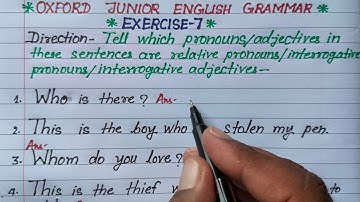 *OXFORD JUNIOR ENGLISH GRAMMAR*
*EXERCISE-7*
Direction- Tell which pronouns/adjectives in
these sentences are relative pronouns/interrogative
pronouns/interrogative adjectives-
1. Who is there? Ans-
2. This is the boy who stolen my pen.
Ans-
3. Whom do you love?
4. This is the thief to